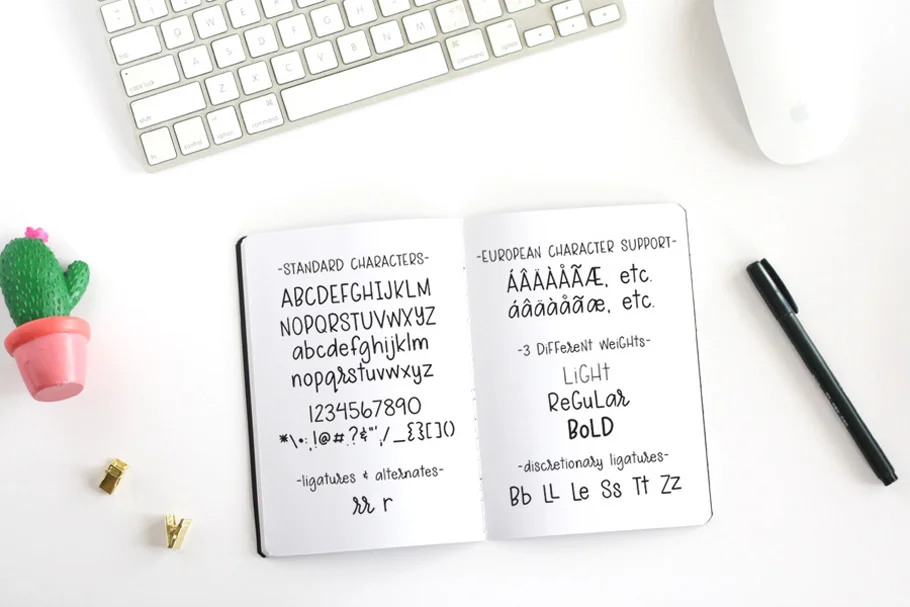 Q W E R T Y
A S D F G H
Z X C V B N M
caps lock
shift
fn control option command
command option
-STANDARD CHARACTERS-
ABCDEFGHIJKLM
NOPQRSTUVWXYZ
abcdefghijklm
nopqrstuvwxyz
1234567890
*\•:,!@#.?&"';/_{}[]()
-ligatures & alternates-
rr r
-EUROPEAN CHARACTER SUPPORT-
ÁÂÄÀÅÃÆ, etc.
áâäàåãæ, etc.
-3 DiFFeReNt WeiGHts-
LiGHt
ReGuLar
BoLD
-discretionary ligatures-
Bb LL Le Ss Tt Zz